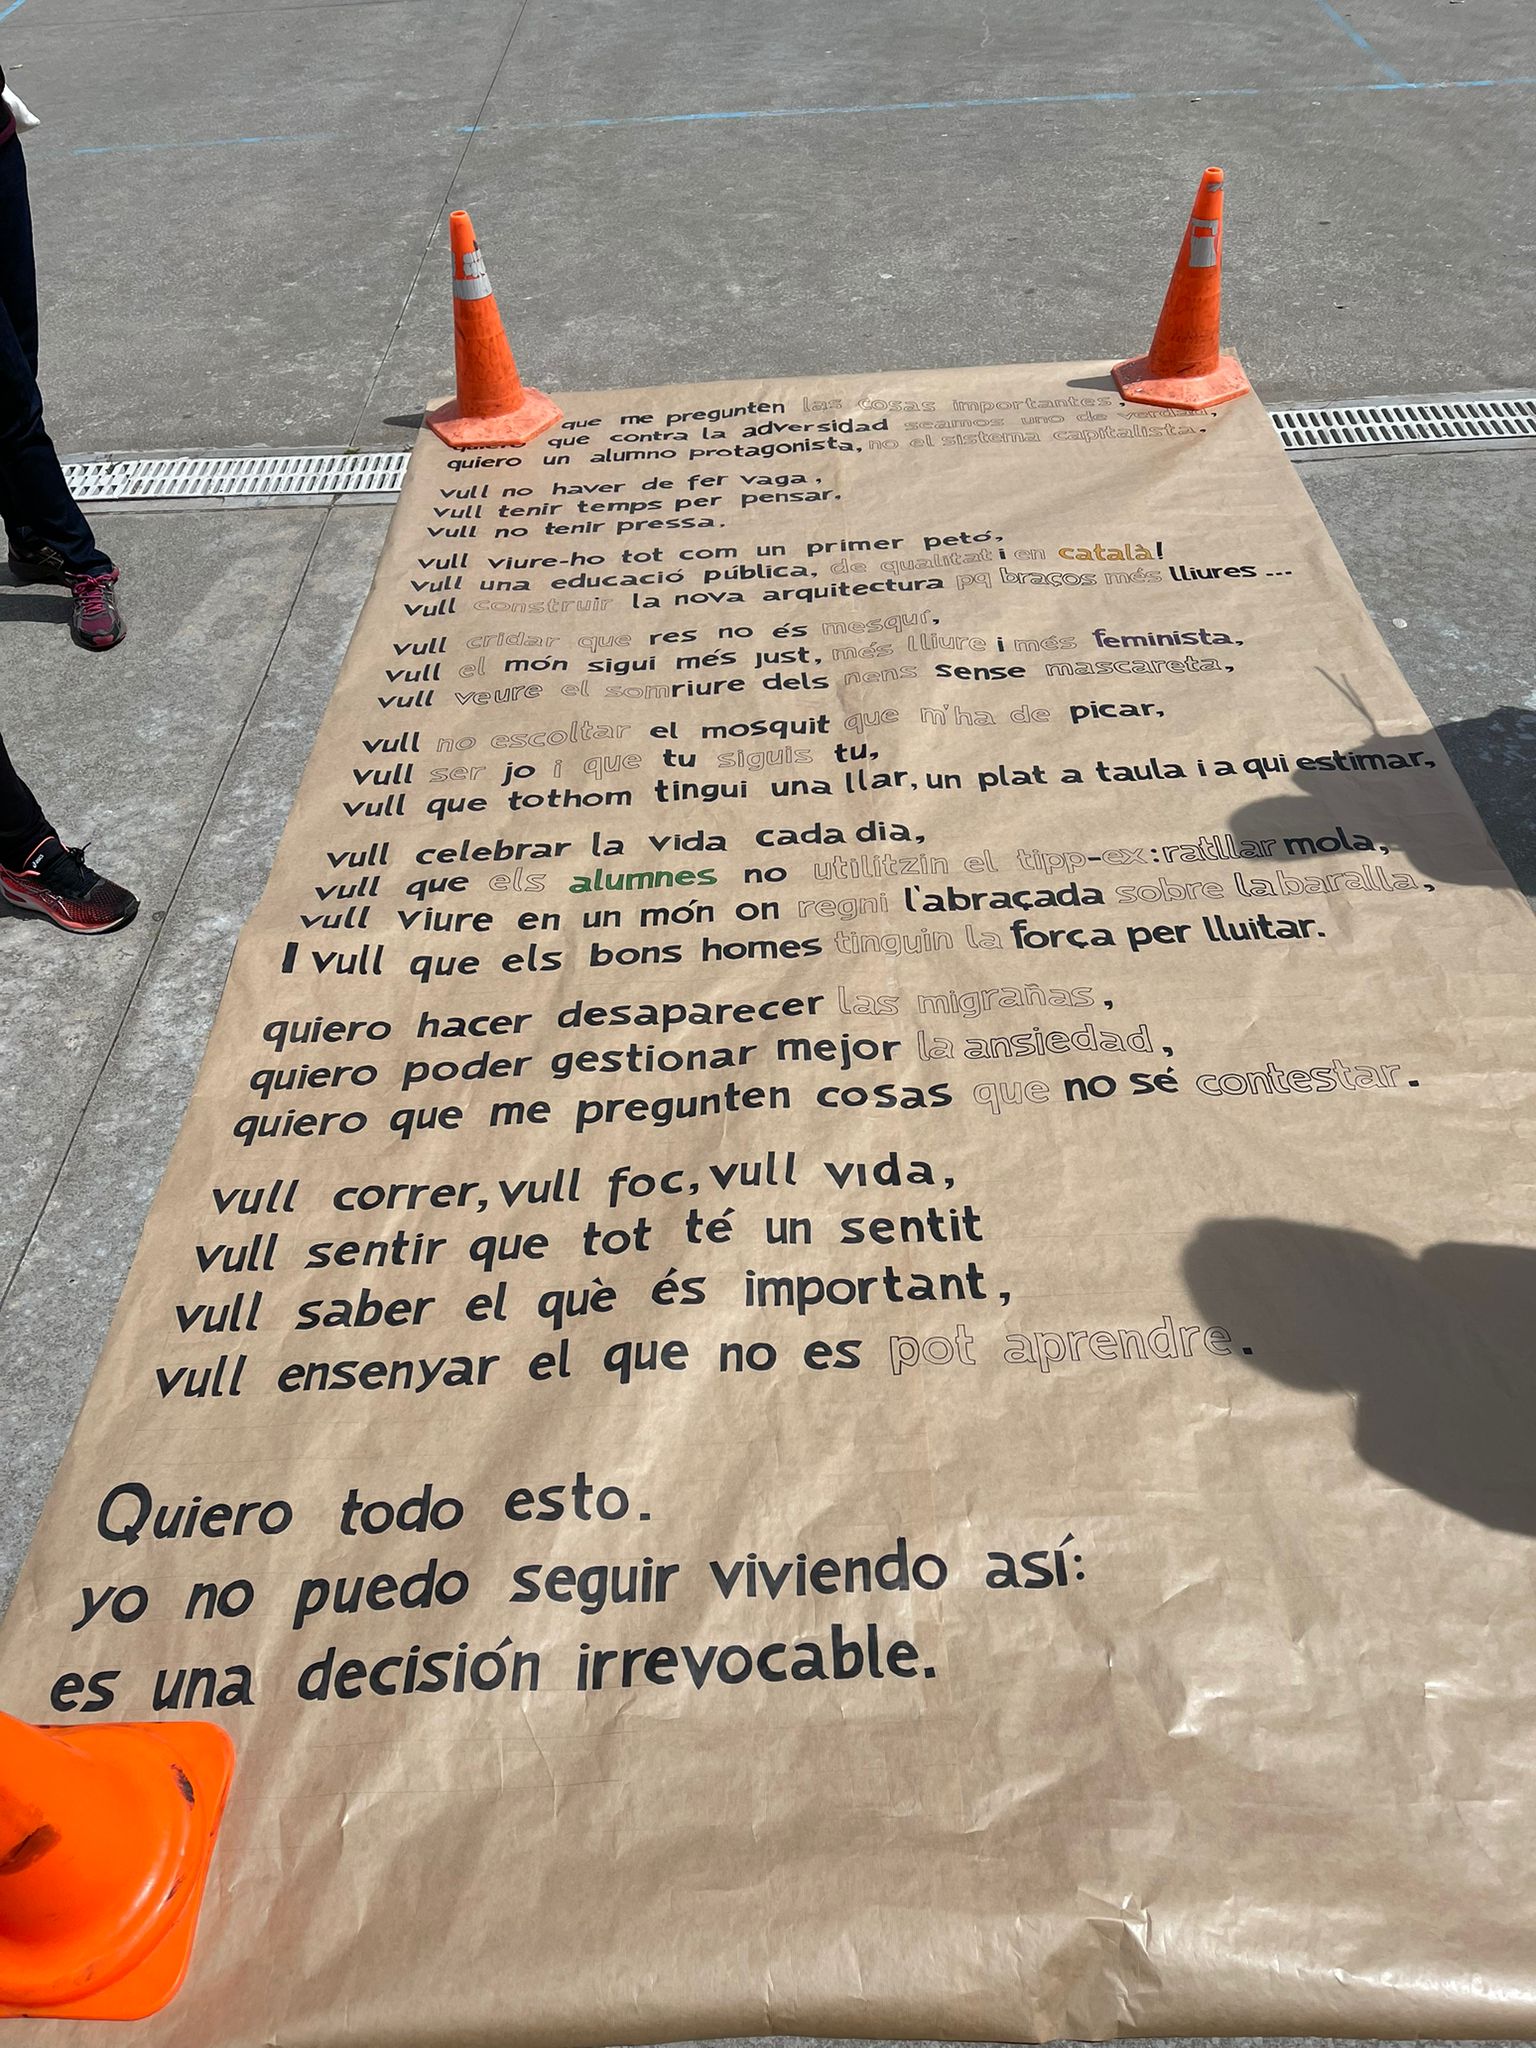 que me pregunten las cosas importantes,
quiero que contra la adversidad seamos uno de verdad,
quiero un alumno protagonista, no el sistema capitalista.
vull no haver de fer vaga,
vull tenir temps per pensar,
vull no tenir pressa.
vull viure-ho tot com un primer petó,
vull una educació pública, de qualitat i en català!
vull construir la nova arquitectura pq braços més lliures ...
vull cridar que res no és mesquí,
vull el món sigui més just, més lliure i més feminista,
vull veure el somriure dels nens sense mascareta,
vull no escoltar el mosquit que m'ha de picar,
vull ser jo i que tu siguis tu,
vull que tothom tingui una llar, un plat a taula i a qui estimar,
vull celebrar la vida cada dia,
vull que els alumnes no utilitzin el tipp-ex: ratllar mola,
vull viure en un món on regni l'abraçada sobre la baralla,
I vull que els bons homes tinguin la força per lluitar.
quiero hacer desaparecer las migrañas,
quiero poder gestionar mejor la ansiedad,
quiero que me pregunten cosas que no sé contestar.
vull correr, vull foc, vull vida,
vull sentir que tot té un sentit
vull saber el què és important,
vull ensenyar el que no es pot aprendre.
Quiero todo esto.
yo no puedo seguir viviendo así:
es una decisión irrevocable.